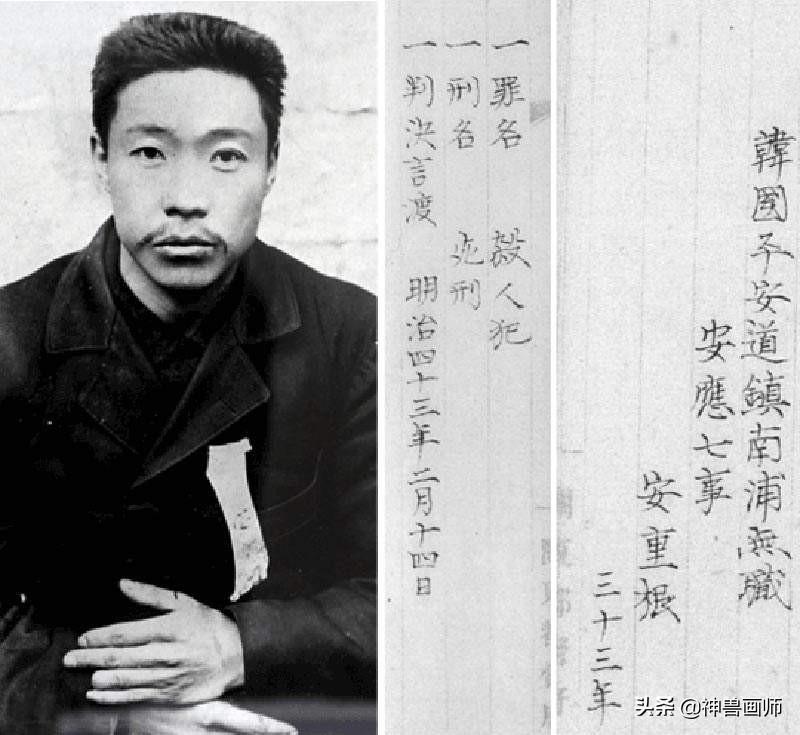 韓國平安道鎮南浦無職
安應七事
安重根
三十三年
一罪名 殺人犯
一刑名 死刑
一判決言渡 明治四十三年二月十四日
头条 @神兽画师